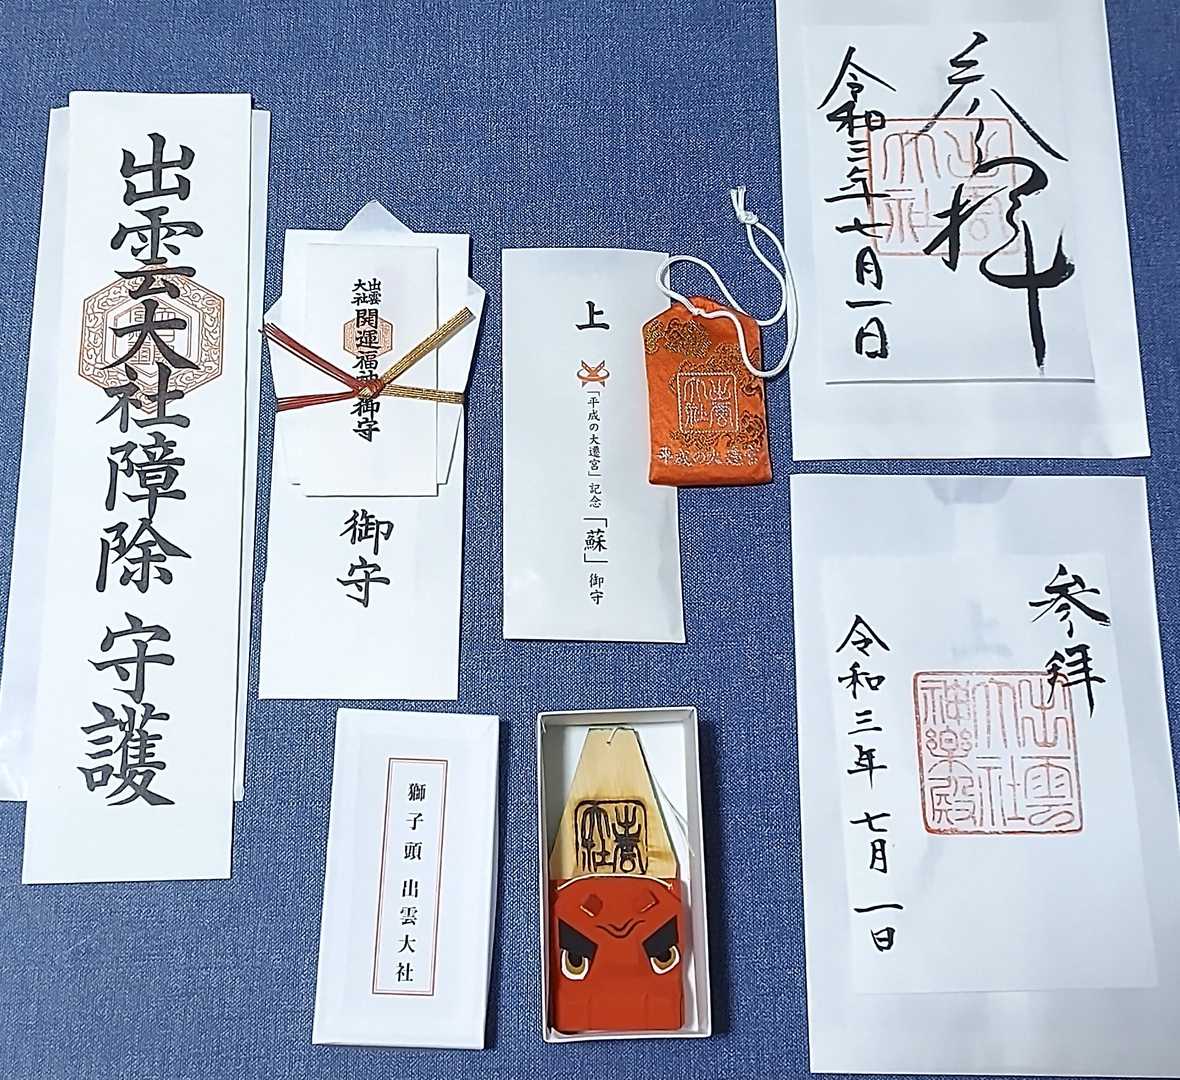 出雲大社障除 守護
出雲
大社
開運福神御守
御守
上
「平成の大遷宮」記念「蘇」御守
出雲
大社
平成の大遷宮
参拝
出雲
大社
令和三年七月一日
参拝
出雲
大社
神楽殿
令和三年七月一日
獅子頭 出雲大社
出雲
大社